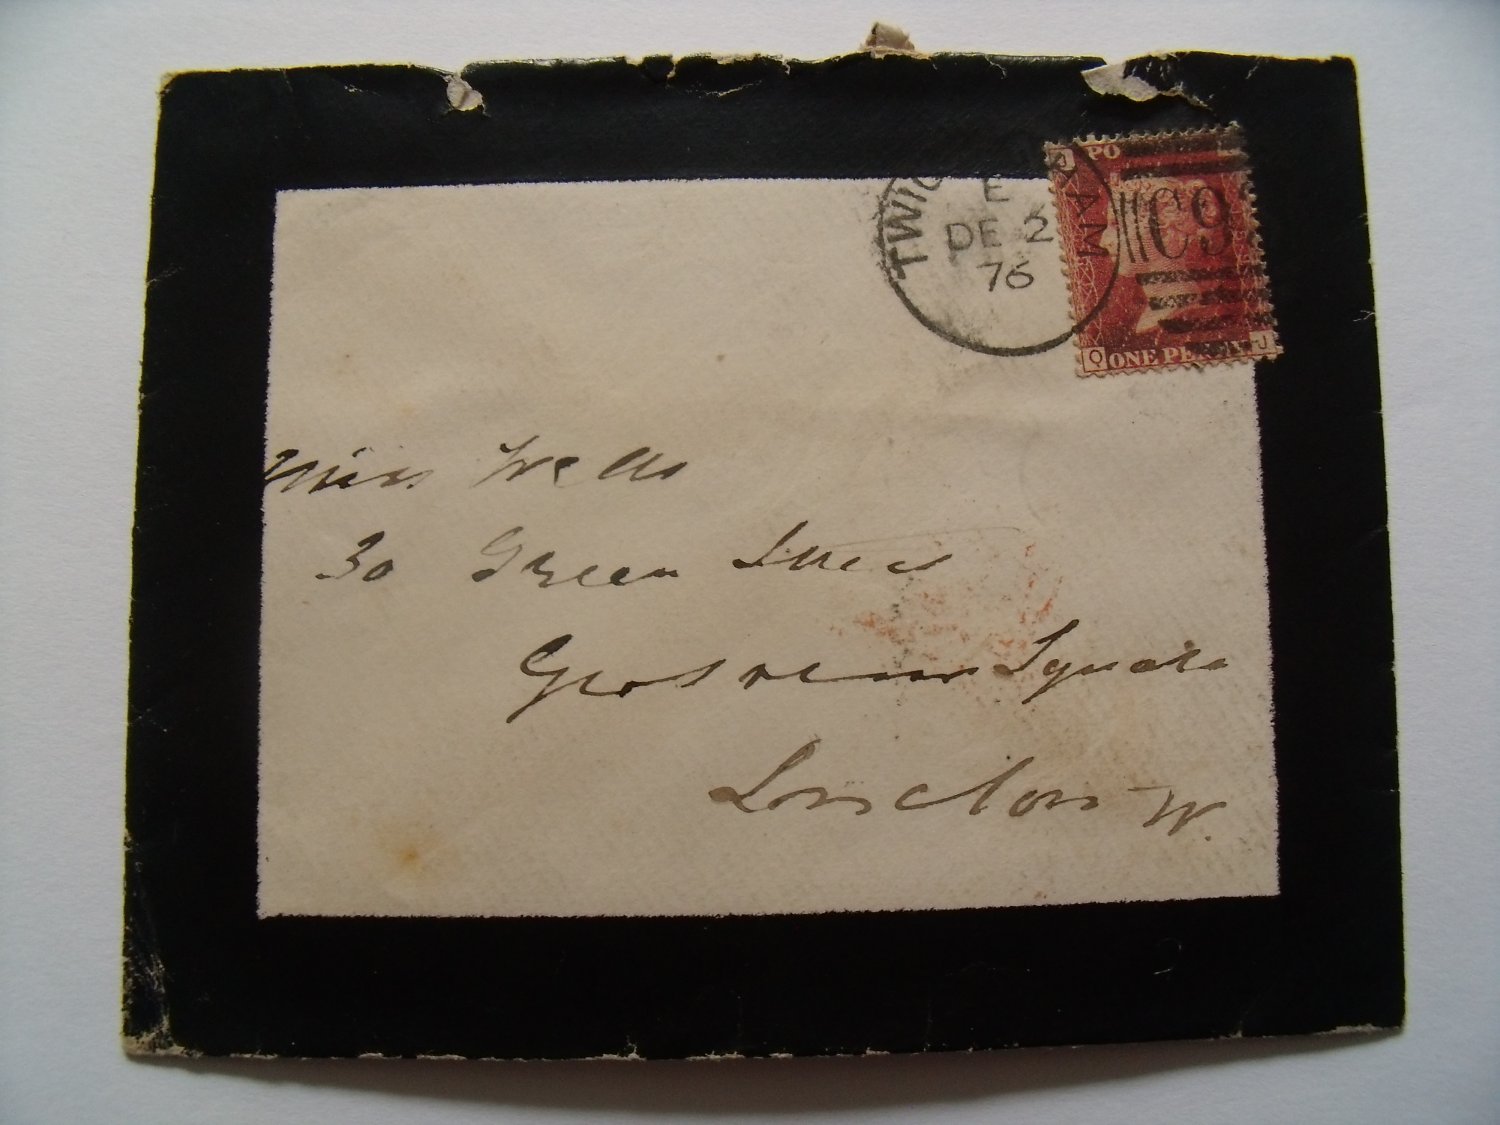 TWIC AM
E
DE 2
76
PO
C9
J
Q ONE PENNY J
Miss Wells
30 Green Street
Grosvenor Square
London W.